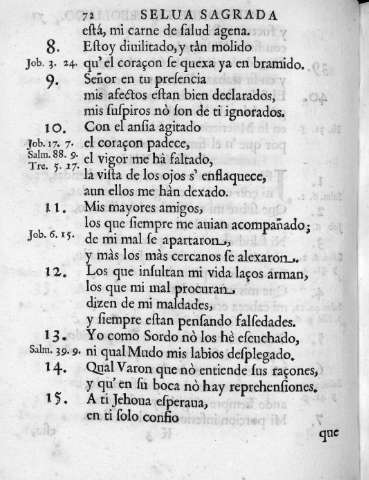 72 SELUA SAGRADA
està, mi carne de salud agena.
8. Estoy diuilitado, y tàn molido
Job. 3. 24. qu'el coraçon se quexa ya en bramido.
9. Señor en tu presencia
mis afectos estan bien declarados,
mis suspiros nò son de ti ignorados.
10. Con el ansia agitado
Job. 17. 7. el coraçon padece,
Salm. 88. 9. el vigor me hà faltado,
Tre. 5. 17. la vista de los ojos s' enflaquece,
aun ellos me hàn dexado.
11. Mis mayores amigos,
los que siempre me auian acompañado;
Job. 6. 15. de mi mal se apartaron,
y màs los màs cercanos se alexaron.
12. Los que insultan mi vida laços arman,
los que mi mal procuran
dizen de mi maldades,
y siempre estan pensando falsedades.
13. Yo como Sordo nò los hè escuchado,
Salm. 39. 9. ni qual Mudo mis labios desplegado.
14. Qual Varon que nò entiende sus raçones,
y qu' en su boca nò hay reprehensiones.
15. A ti Jehoua esperaua,
en ti solo confio
que